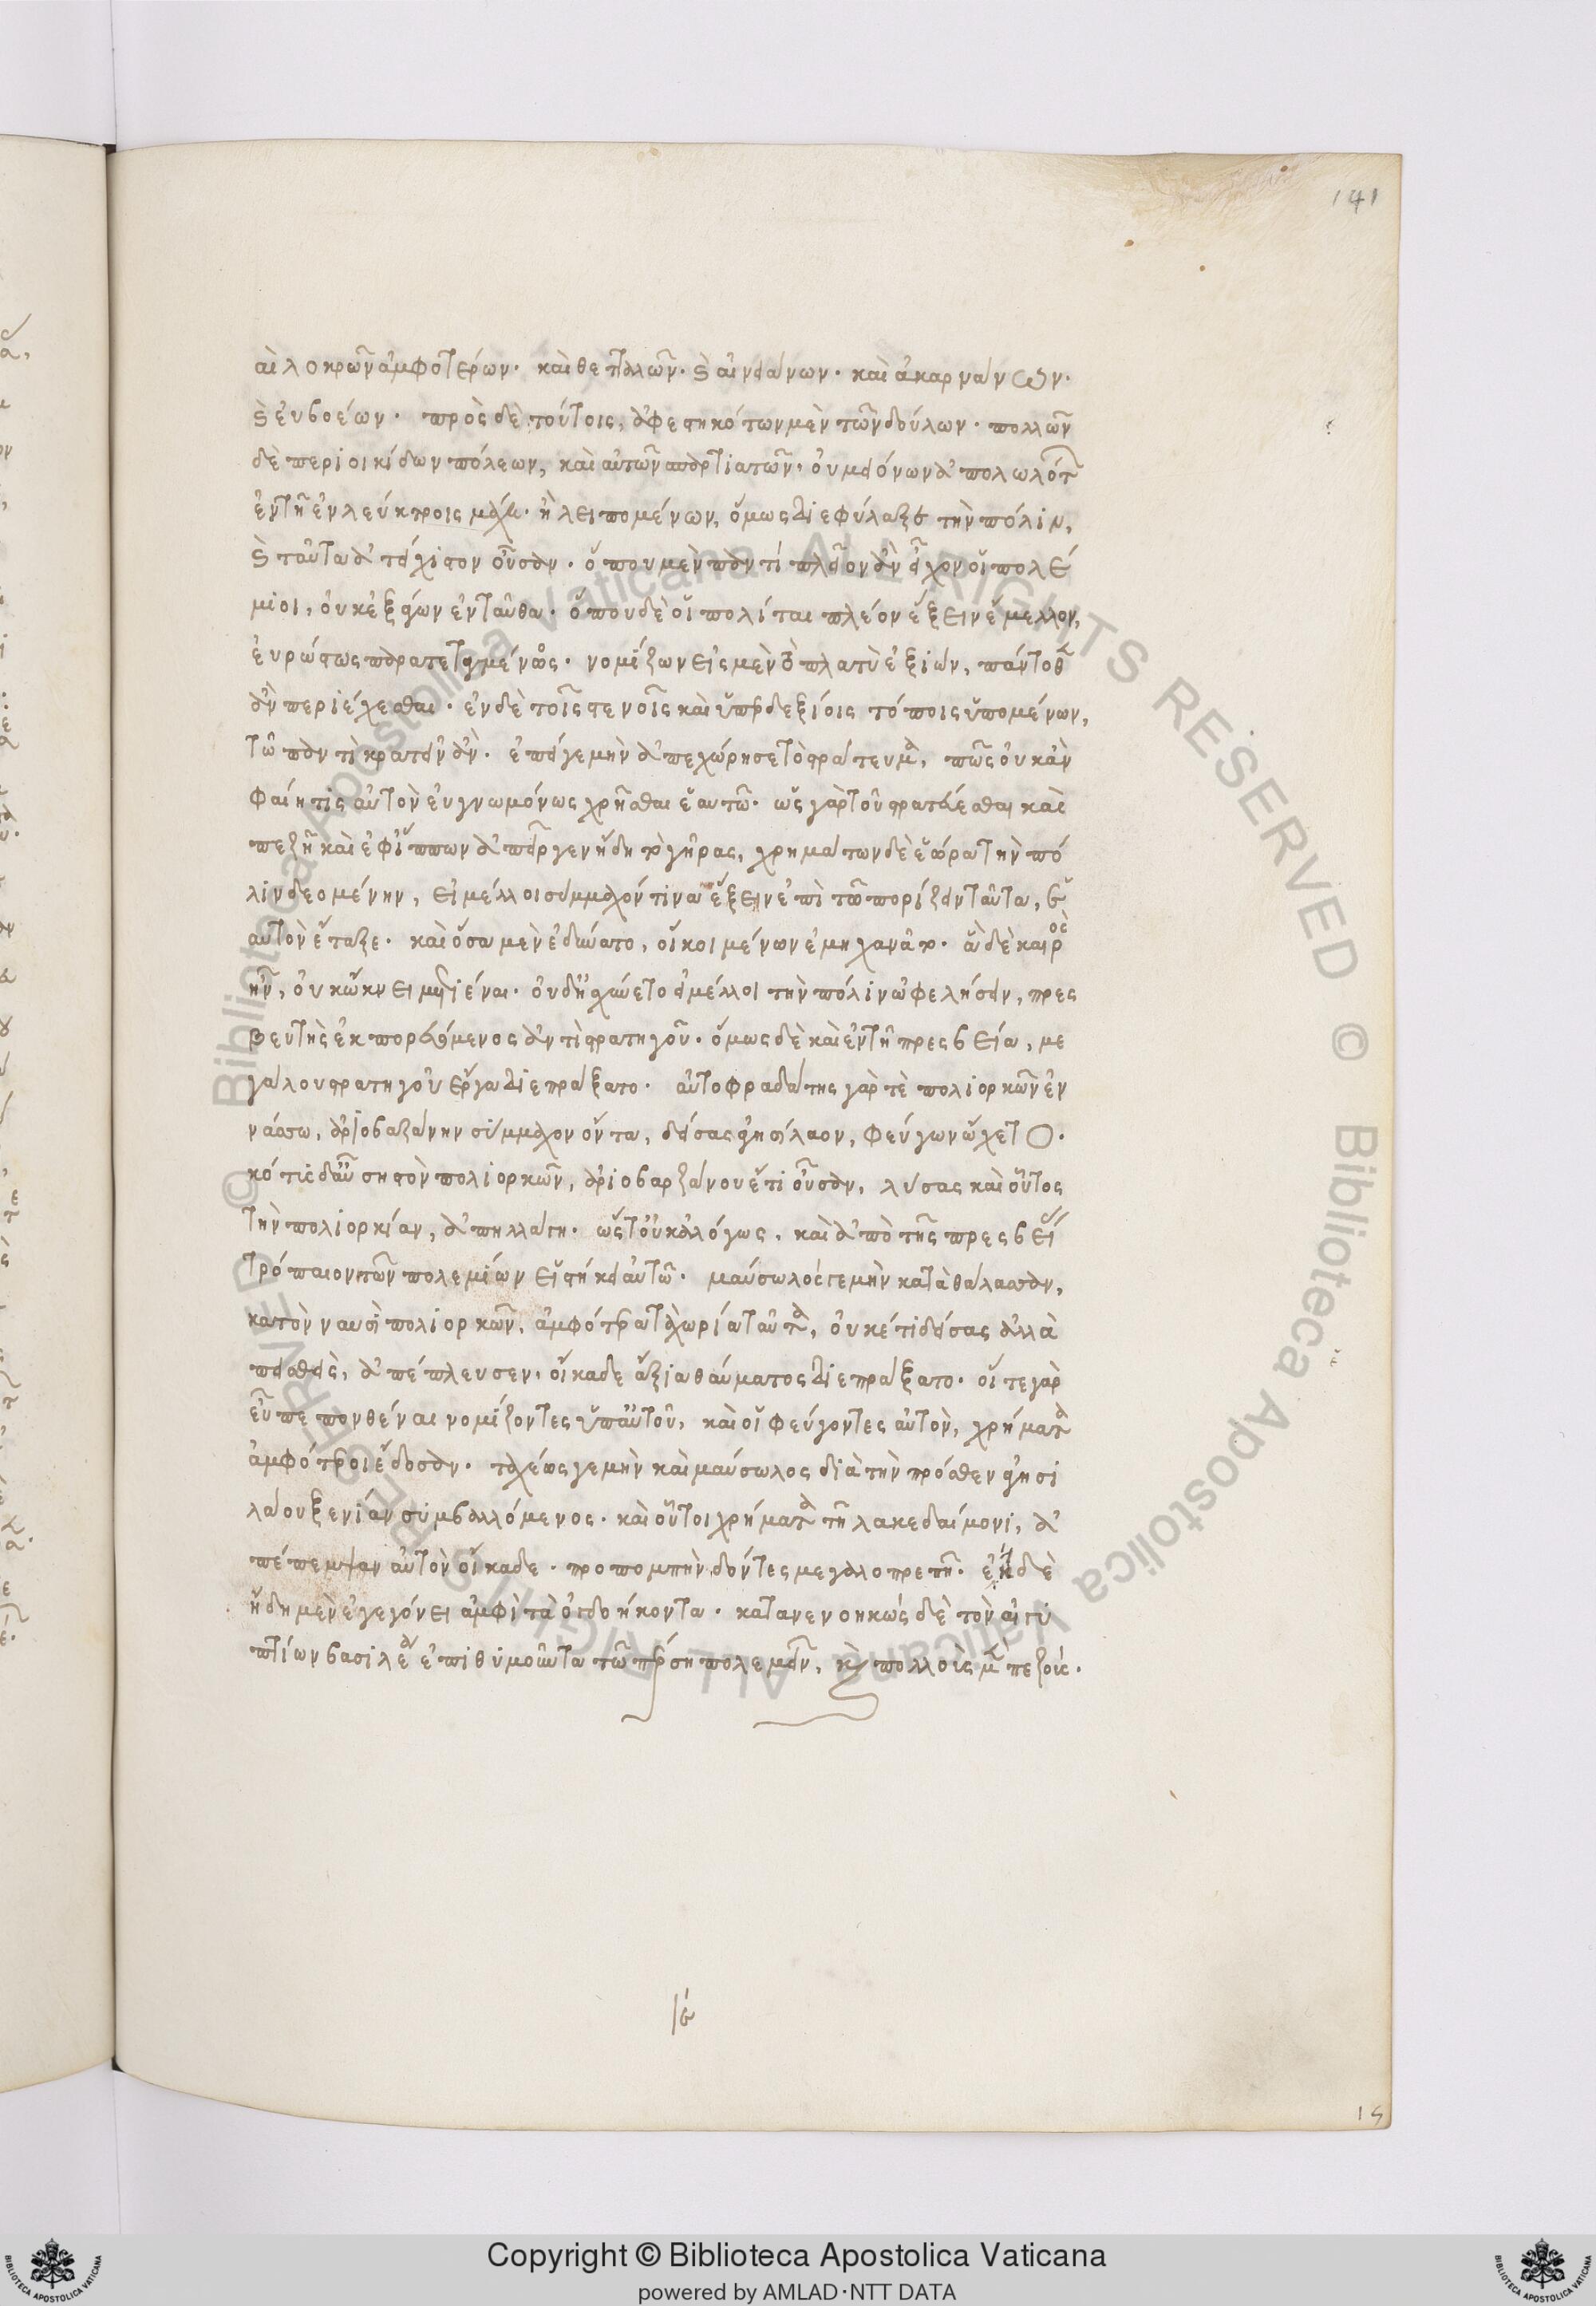 141
αὶ λοκρῶν ἀμφοτέρων. καὶ θετταλῶν. καὶ αἰνιάνων. καὶ ἀκαρνάνων.
καὶ εὐβοέων. πρὸς δὲ τούτοις, ἀφεστηκότων μὲν τῶν δούλων. πολλῶν
δὲ περιοικίδων πόλεων, καὶ αὐτῶν σπαρτιατῶν. οὐ μειόνων ἀπολωλότ
ἐν τῇ ἐν λεύκτροις μάχῃ. ἢ λειπομένων, ὅμως διεφύλαξε τὴν πόλιν,
καὶ ταῦτα ἀτείχιστον οὖσαν. ὅπου μὲν παντὶ πλεῖον ἂν εἶχον οἱ πολέ
μιοι, οὐκ ἐξάγων ἐνταῦθα. ὅπου δὲ οἱ πολίται πλέον ἕξειν ἔμελλον,
εὐρώστως παρατεταγμένος. νομίζων εἰς μὲν τὸ πλατὺ ἐξιών, πάντοθεν
ἂν περιέχεσθαι. ἐν δὲ τοῖς στενοῖς καὶ ὑπερδεξίοις τόποις ὑπομένων,
τῷ παντὶ κρατεῖν ἄν. ἐπεί γε μὴν ἀπεχώρησε τὸ στράτευμα, πῶς οὐκ ἂν
φαίη τις αὐτὸν εὐγνωμόνως χρῆσθαι ἑαυτῷ. ὡς γὰρ τοῦ στρατεύεσθαι καὶ
πεζῇ καὶ ἐφ' ἵππων ἀπεῖργεν ἤδη τὸ γῆρας, χρημάτων δὲ ἑώρα τὴν πό
λιν δεομένην, εἰ μέλλοι σύμμαχόν τινα ἕξειν ἐπὶ τῷ πορίζειν ταῦτα,
αὑτὸν ἔταξε. καὶ ὅσα μὲν ἐδύνατο, οἴκοι μένων ἐμηχανᾶτο. ἃ δὲ καιρὸς
ἦν, οὐκ ὤκνει μετιέναι. οὐδ' ᾐσχύνετο εἰ μέλλοι τὴν πόλιν ὠφελήσειν, πρες
βευτὴς ἐκπορευόμενος ἀντὶ στρατηγοῦ. ὅμως δὲ καὶ ἐν τῇ πρεσβείᾳ, με
γάλου στρατηγοῦ ἔργα διεπράξατο. αὐτοφραδάτης γάρ τε πολιορκῶν ἐν
νάσσω, ἀριοβαζάνην σύμμαχον ὄντα, δείσας ἀγησίλαον, φεύγων ᾤχετο.
κότις δ' αὖ σηστὸν πολιορκῶν, ἀριοβαρζάνου ἔτι οὖσαν, λύσας καὶ οὗτος
τὴν πολιορκίαν, ἀπηλλάγη. ὥστ' οὐκ ἀλόγως. καὶ ἀπὸ τῆς πρεσβείας
τρόπαιον τῶν πολεμίων εἱστήκει αὐτῷ. μαύσωλός γε μὴν κατὰ θάλασσαν,
κατὸν ναυσὶ πολιορκῶν, ἀμφότερα τὰ χωρία ταῦτα, οὐκέτι δείσας ἀλλὰ
πεισθεὶς, ἀπέπλευσεν. οἴκαδε ἄξια θαύματος διεπράξατο. οἵ τε γὰρ
εὖ πεπονθέναι νομίζοντες ὑπ' αὐτοῦ, καὶ οἱ φεύγοντες αὐτὸν, χρήματα
ἀμφότεροι ἔδοσαν. ταχέως γε μὴν καὶ μαύσωλος διὰ τὴν πρόσθεν ἀγησι
λάου ξενίαν συμβαλλόμενος. καὶ οὗτοι χρήματα τῇ λακεδαίμονι, ἀ
πέπεμψαν αὐτὸν οἴκαδε. προπομπὴν δόντες μεγαλοπρεπῆ. ἐκ δὲ
ἤδη μὲν ἐγεγόνει ἀμφὶ τὰ ὀγδοήκοντα. κατανενοηκὼς δὲ τὸν αἰγυ
πτίων βασιλέα ἐπιθυμοῦντα τῷ πέρσῃ πολεμεῖν, καὶ πολλοὺς μὲν πεζοὺς.
15
Copyright © Biblioteca Apostolica Vaticana
powered by AMLAD·NTT DATA